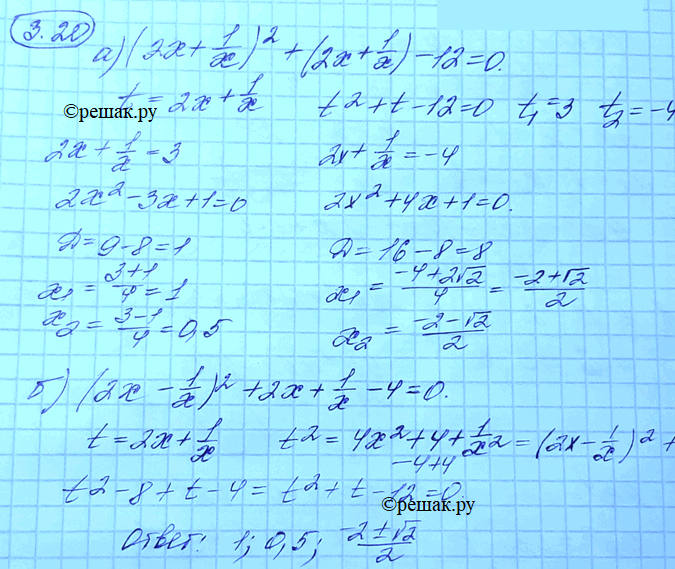 3.20
а) (2x + 1/x)² + (2x + 1/x) - 12 = 0.
t = 2x + 1/x    t² + t - 12 = 0    t₁ = 3    t₂ = -4
©решак.ру
2x + 1/x = 3    2x + 1/x = -4
2x² - 3x + 1 = 0    2x² + 4x + 1 = 0.
D = 9 - 8 = 1    D = 16 - 8 = 8
x₁ = (3+1)/4 = 1    x₁ = (-4 + 2√2)/4 = (-2 + √2)/2
x₂ = (3-1)/4 = 0,5    x₂ = (-2 - √2)/2
б) (2x - 1/x)² + 2x + 1/x - 4 = 0.
t = 2x + 1/x    t² = 4x² + 4 + 1/x² = (2x - 1/x)² +
-4+4
t² - 8 + t - 4 = t² + t - 12 = 0
©решак.ру
Ответ: 1; 0,5; (-2 ± √2)/2